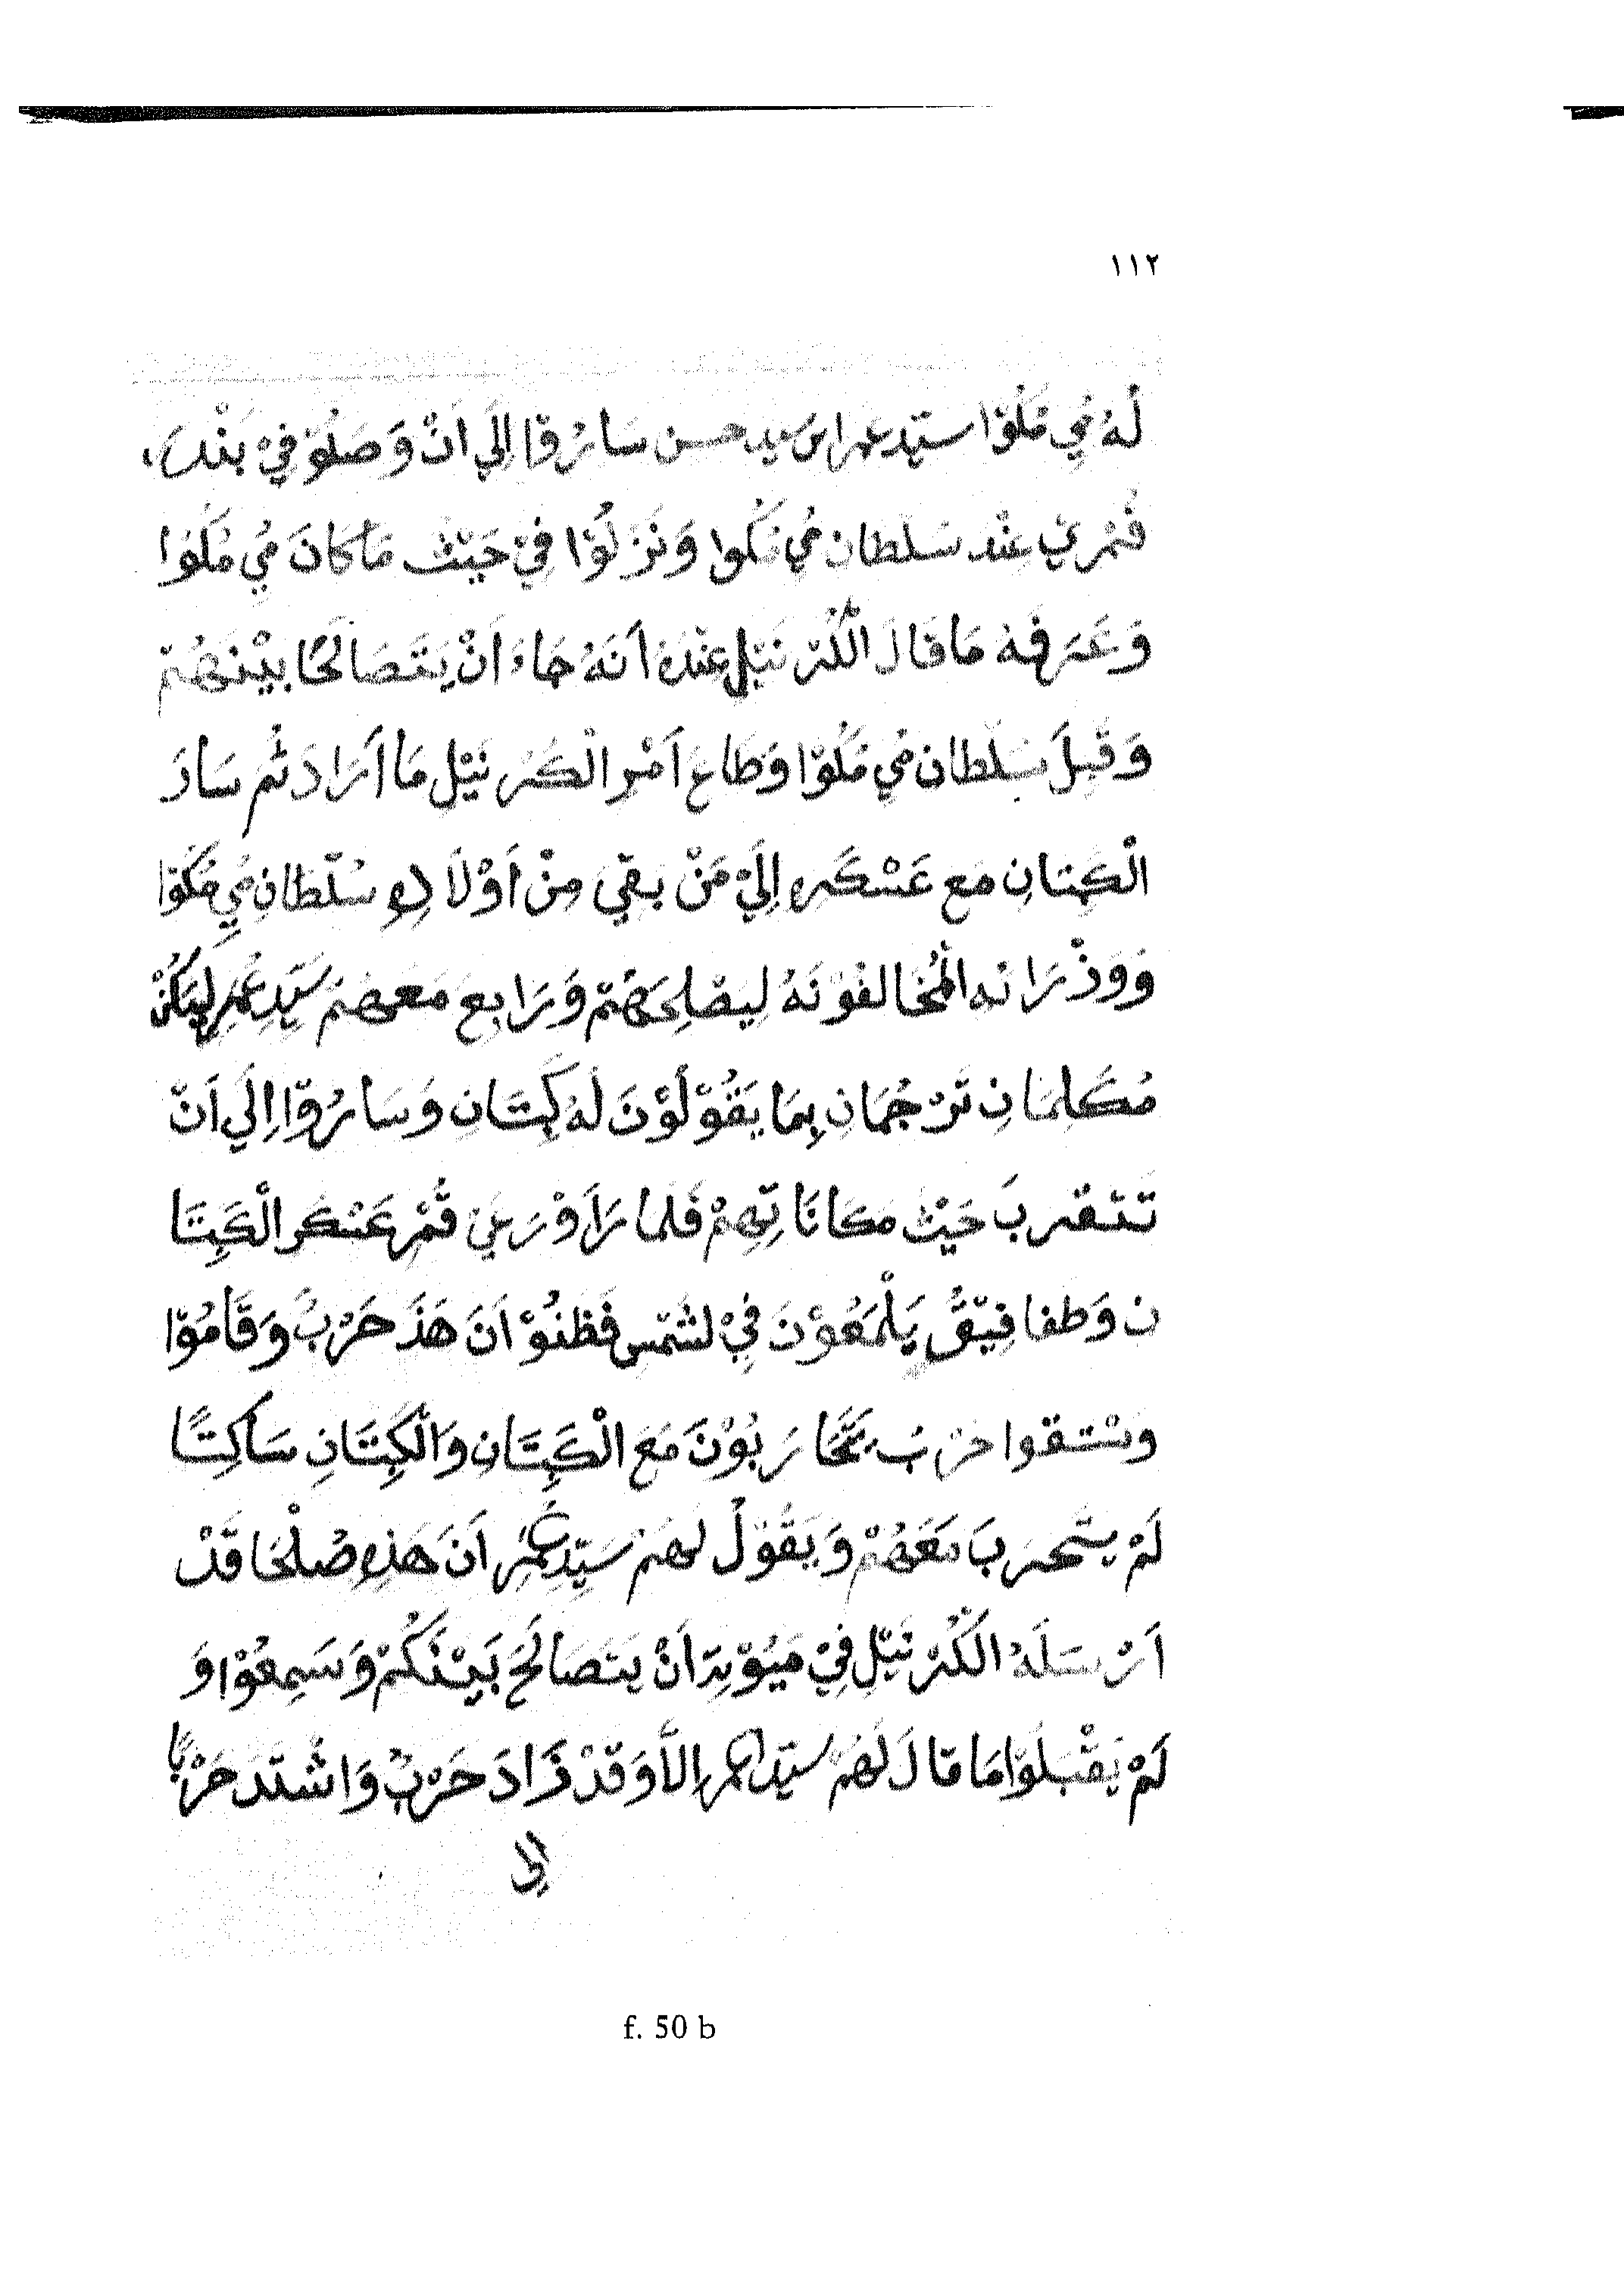 ١١٢
لَهُ مُيِ مُلُوّا سيّد عمر ابن سَعيد حسن سَارُوّا إِلَي اَنّ وَصَلُوْ فِيْ بَنْدَرَ،
فُمْرِيّ عِنْدَ سَلّطان مُيِ مُكُوا وَنَزَلُوّا فِيْ حَيْثُ مَا كَانَ مُيِ مُكُوّا
وَعَرَفِهُ مَا قَالَ الْكُرْنَيْلِ عِنْدَهُ اَنَهُ جَاءَ اَنْ يَتَصَالَحَا بَيْنَهُمْ
وَقَبِلَ سُلّطان مُيِ مُكُوّا وَطَاعَ اَمْرِ الْكَرْنَيْلِ مَا اَرَادَ ثُمَ سَارَ
الْكَبِتَانِ مَع عَسْكَرِهِ اِلَيْ مَنْ بَقِيَ مِنْ اَوْلَادِهِ سُلّطَانِ مُيِ مُكُوّا
وَوَذْرَانَهِ الْمُخَالفُوْنَهُ لِيَصْلِحَهُمْ وَرَابِعَ مَعَهُمْ سَيّدِ عُمَرِ لِيَكُنْ
مُكَلِمَانِ تَرْجُمَانِ بِمَا يَقُوْلُوْنَ لَهُ كَبِتَانِ وَسَارُوّا اِلَي اَنّ
تَتَقرب حَيْثُ مَكَانَاتِهِمْ فَلَما رَاَوْ رَيَيْ قُمْر عَسْكَر الْكَبِتَا
ن وَطفا فِيْقُ يَلْمَعُوْنَ فِيْ لشَمْسِ فَظَنُوْ اَنَ هَذَ حَرْبُ وَقَامُوّا
وَسْتقوا حَرْبُ يَتَحَارَبُوْنَ مَعَ الْكَبِتَانِ وَالْكَبِتَانِ سَاكِتًا
لَمْ يتحرَبَ مَعَهُمْ وَيَقُوْلُ لهُمْ سَيّدِ عُمَرِ اَنَ هَذِهِ صُلْحَا قَدْ
اَرْسَلَهُ الْكُرْنَيْلِ فِيْ مَيُوْتِ اَنْ يَتَصَالَحَ بَيْنَكُمْ وَسَمِعُوْا وَ
لَمْ يَقْبَلُوّا مَا قالَ لَهُمْ سَيّد عمر اِلاَّ وَقَدْ زَادَ حَرْبُ وَاشْتَدَ حَرْبًا
الي
f. 50 b